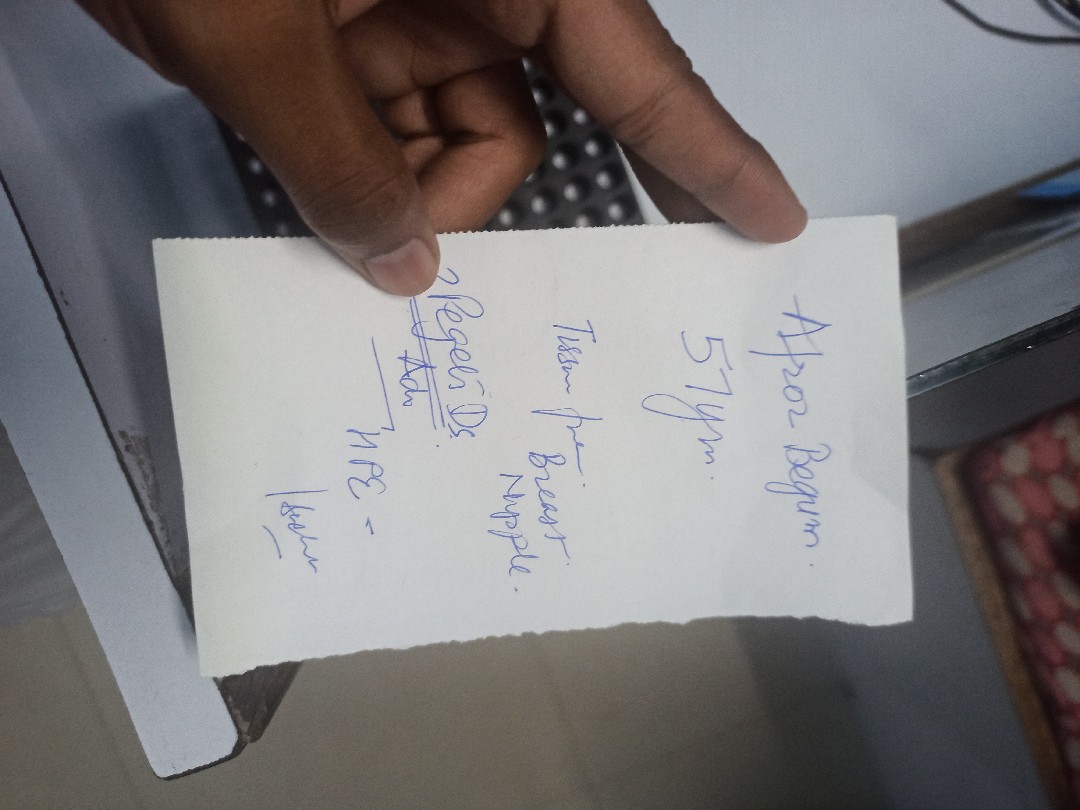 Afroz Begum.
57 yrs.
Tissue from Breast
Nipple.
? Pegets Ds.
Adv
HPE -